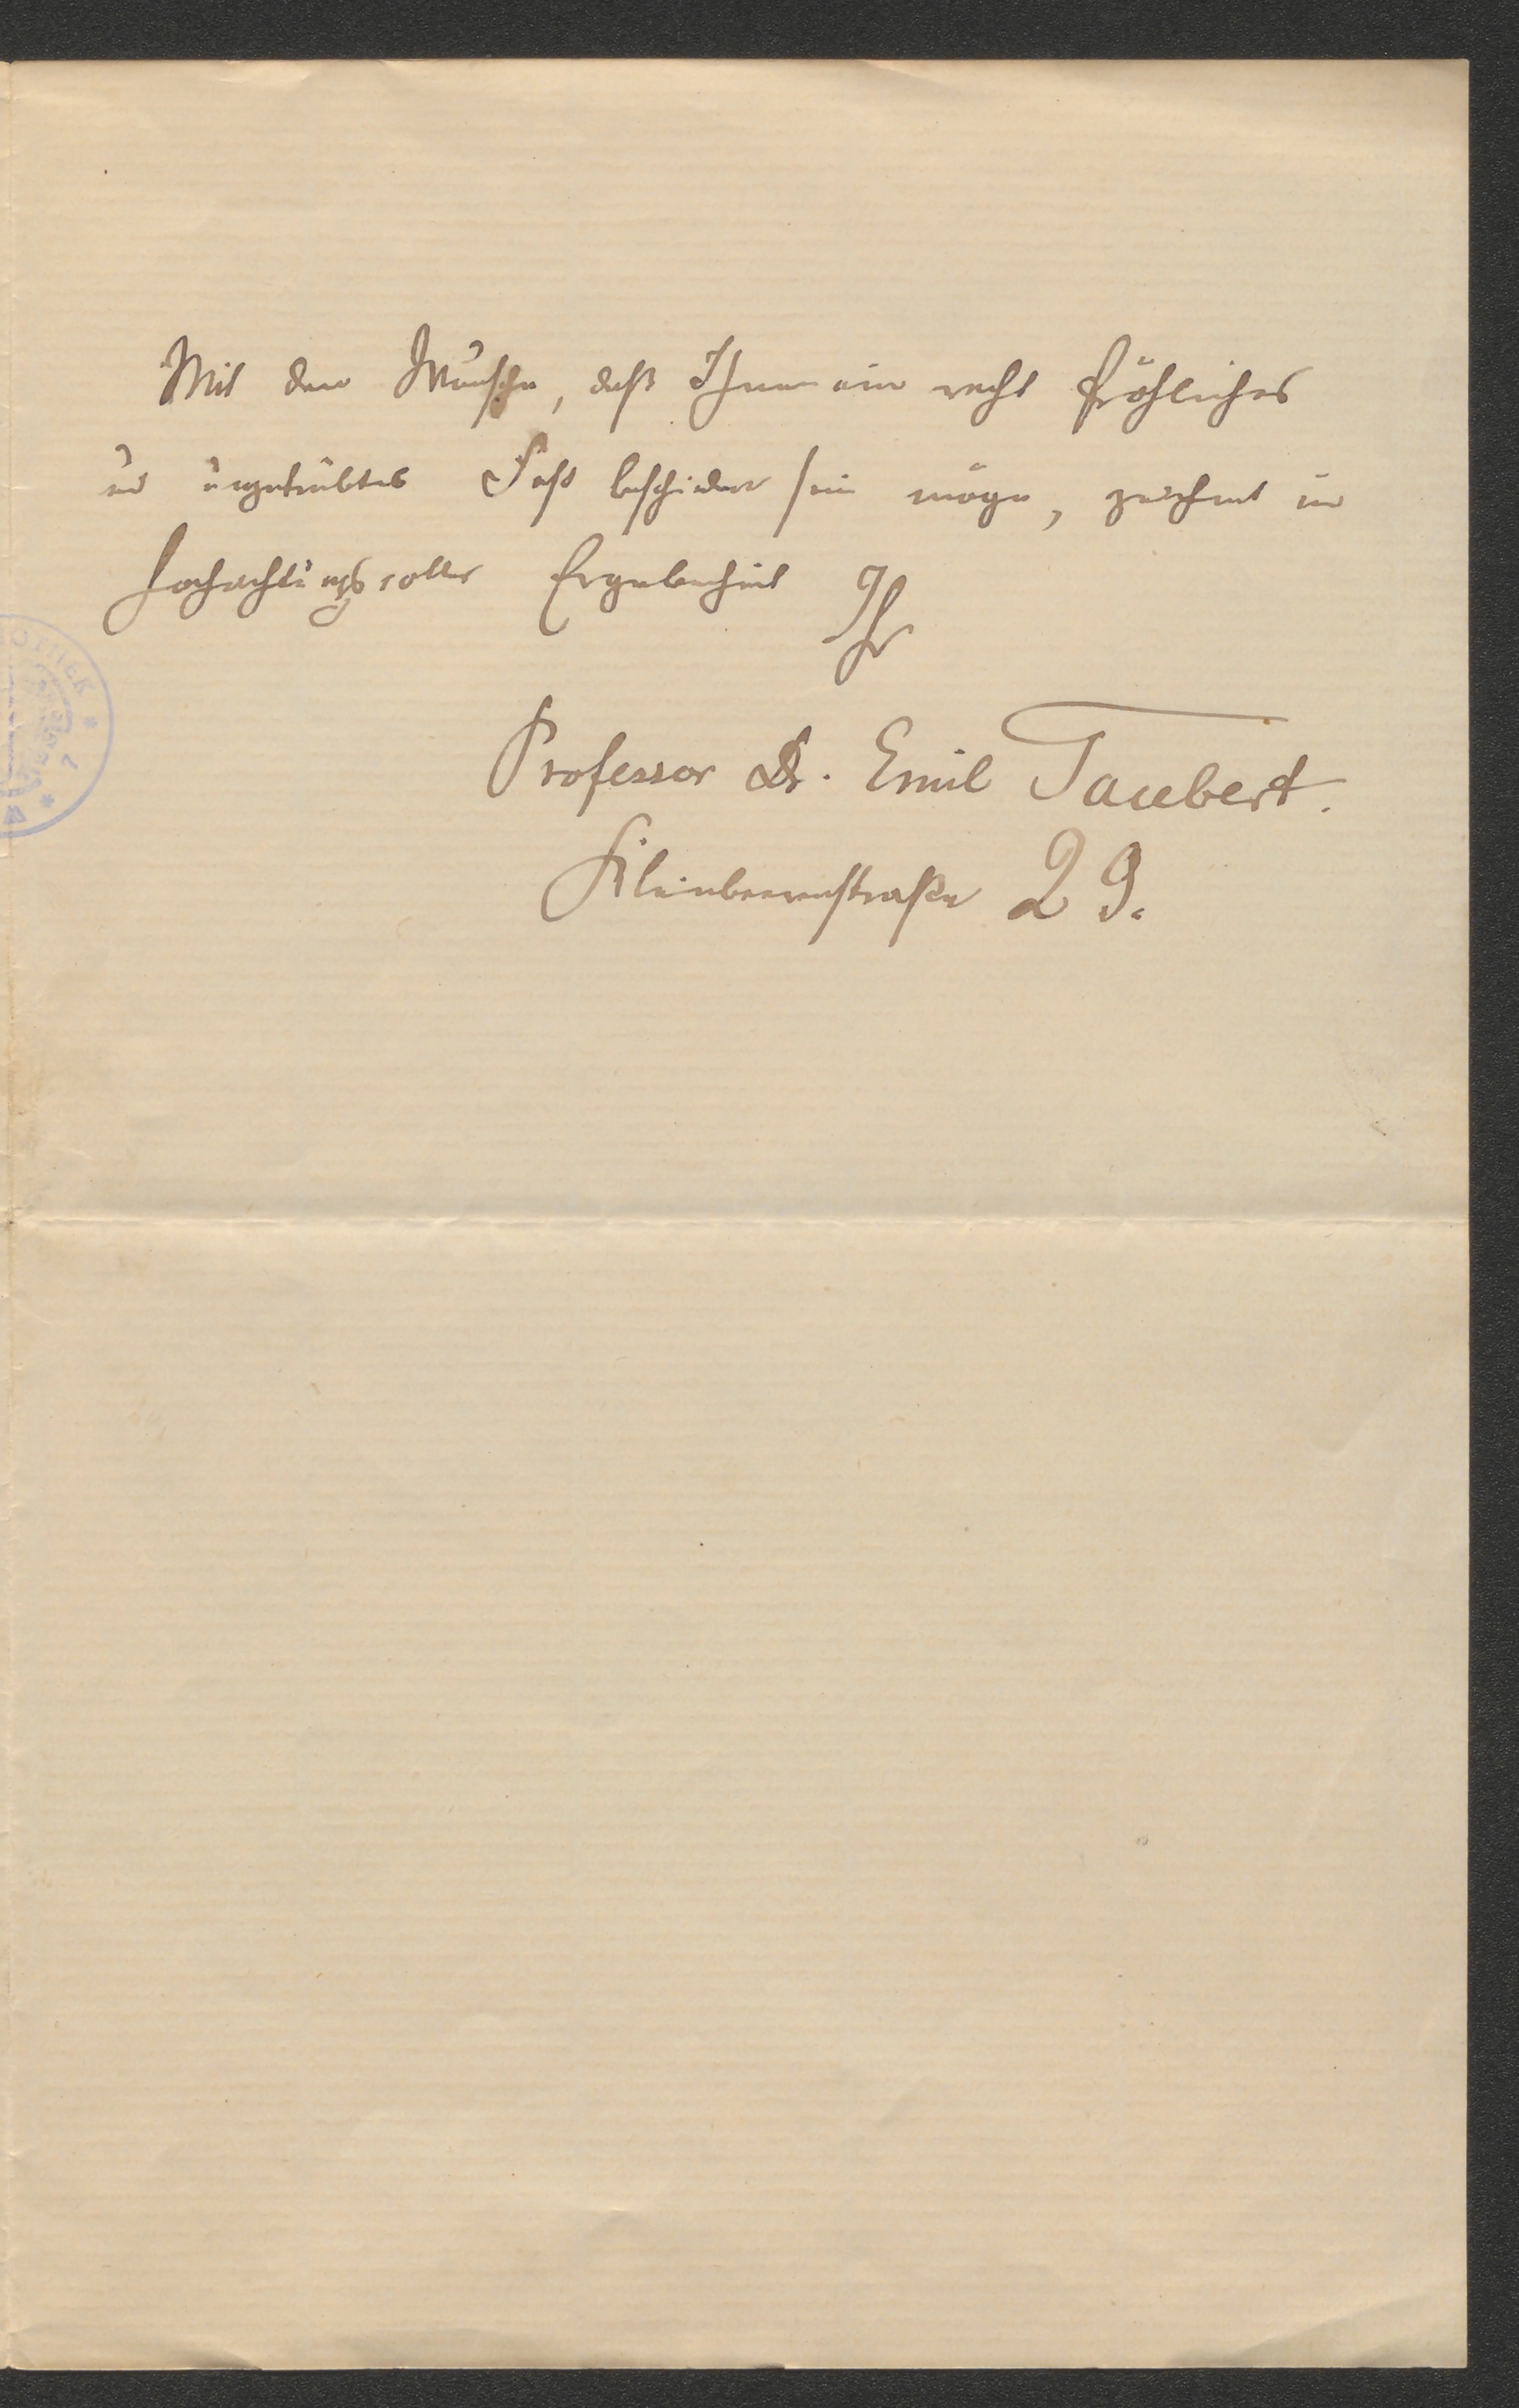 Mit dem Wunsche, daß Ihnen ein recht fröhliches
und ungetrübtes Fest beschieden sein möge, zeichnet in
hochachtungsvoller Ergebenheit Ihr
Professor Dr. Emil Taubert.
Kleinbeerenstraße 29.